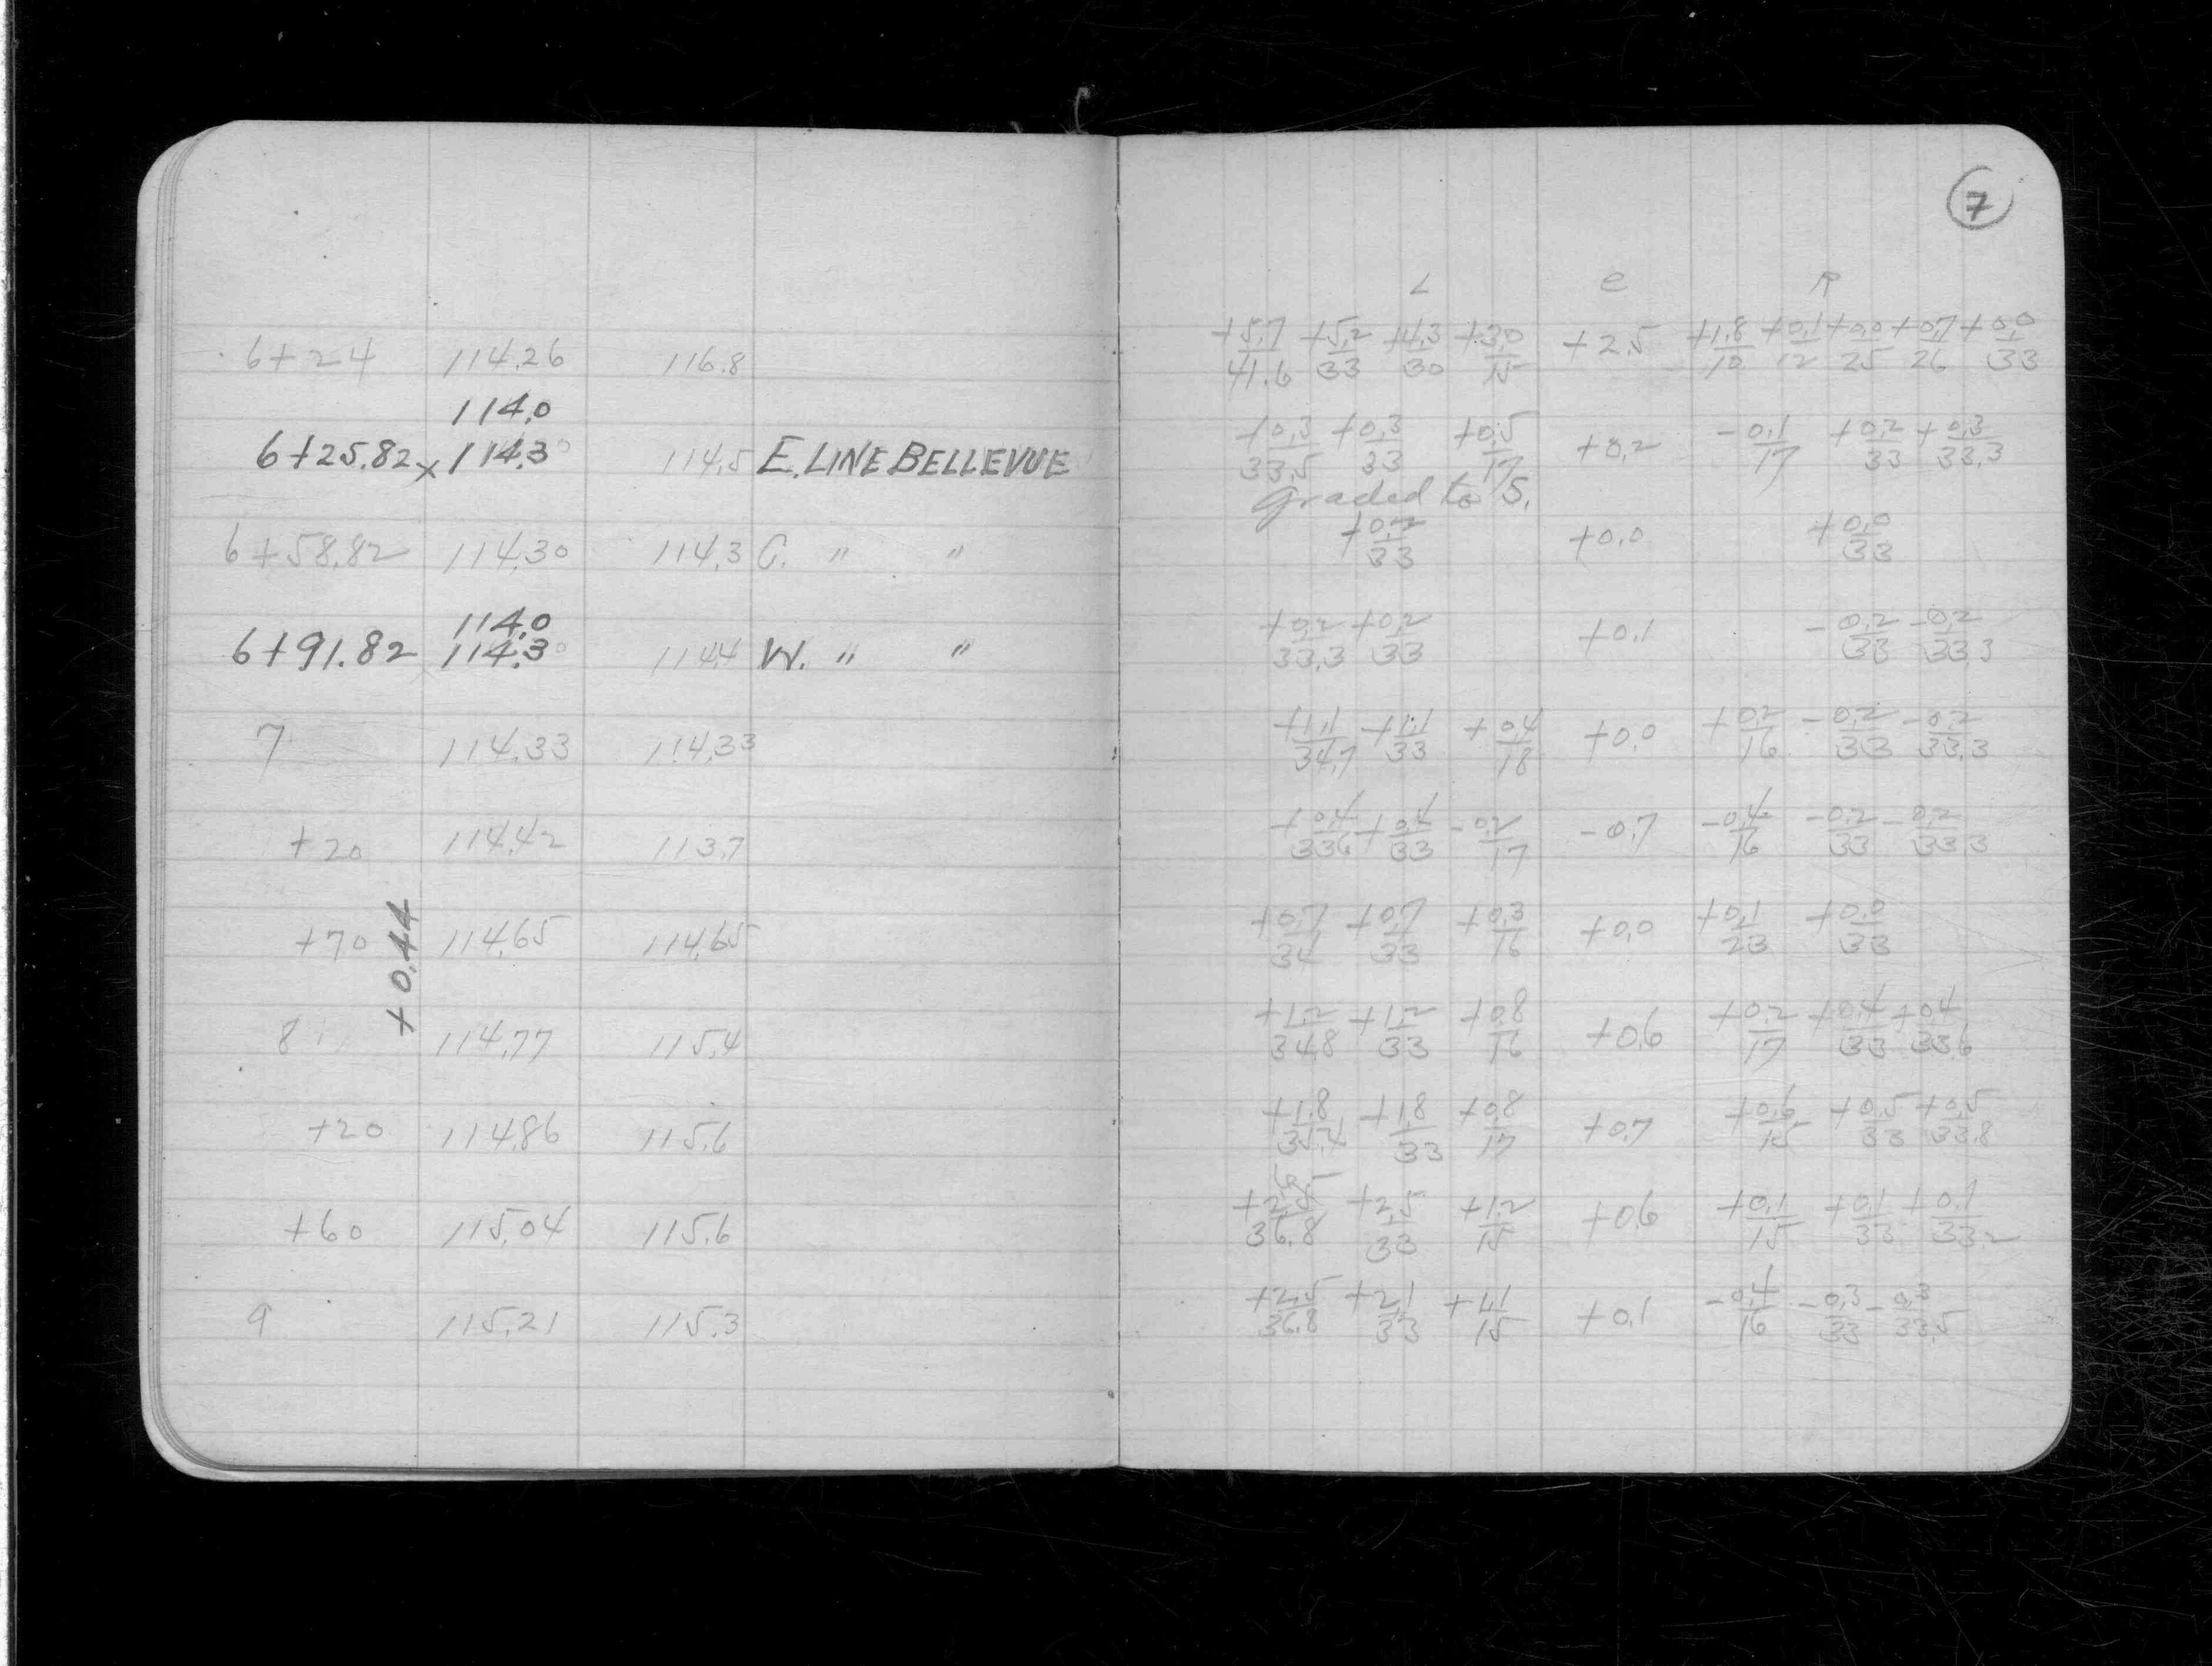 7
L C R
6+24 114.26 116.8 +5.7/41.6 +5.2/33 +4.3/30 +3.0/15 +2.5 +1.8/10 +0.1/12 +0.0/25 +0.7/26 +0.0/33
114.0
6+25.82 x 114.30 114.5 E. LINE BELLEVUE +0.3/33.5 +0.3/33 +0.5/17 +0.2 -0.1/17 +0.2/33 +0.3/33.3
graded to S.
6+58.82 114.30 114.3 C. " " +0.2/33 +0.0 +0.0/33
114.0
6+91.82 114.30 114.4 W. " " +0.2/33.3 +0.2/33 +0.1 -0.2/33 -0.2/33.3
7 114.33 114.33 +1.1/34.7 +1.1/33 +0.4/18 +0.0 +0.2/16 -0.2/33 -0.2/33.3
+20 114.42 113.7 +0.4/33.6 +0.4/33 -0.2/17 -0.7 -0.4/16 -0.2/33 -0.2/33.3
+0.44
+70 114.65 114.65 +0.7/34 +0.7/33 +0.3/16 +0.0 +0.1/23 +0.0/33
8 114.77 115.4 +1.2/34.8 +1.2/33 +0.8/16 +0.6 +0.2/17 +0.4/33 +0.4/33.6
+20 114.86 115.6 +1.8/35.4 +1.8/33 +0.8/17 +0.7 +0.6/15 +0.5/33 +0.5/33.8
+60 115.04 115.6 /36.8 +2.5/33 +1.2/15 +0.6 +0.1/15 +0.1/33 +0.1/33.2
9 115.21 115.3 +2.5/36.8 +2.1/33 +1.1/15 +0.1 -0.4/16 -0.3/33 -0.3/33.5